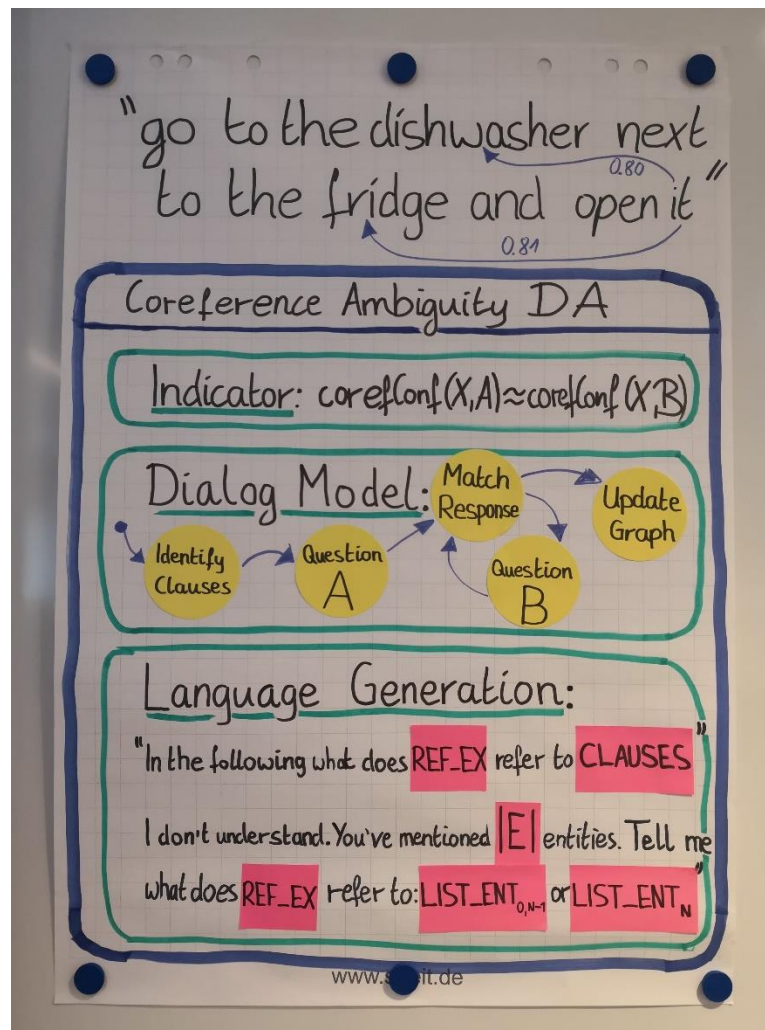 "go to the dishwasher next
0.80
to the fridge and open it"
0.81
Coreference Ambiguity DA
Indicator: corefConf(X,A)≈corefConf(X,B)
Dialog Model:
Match
Response
Update
Graph
Identify
Clauses
Question
A
Question
B
Language Generation:
"In the following what does REF_EX refer to CLAUSES"
I don't understand. You've mentioned |E| entities. Tell me
what does REF_EX refer to: LIST_ENT0,N-1 or LIST_ENTN"